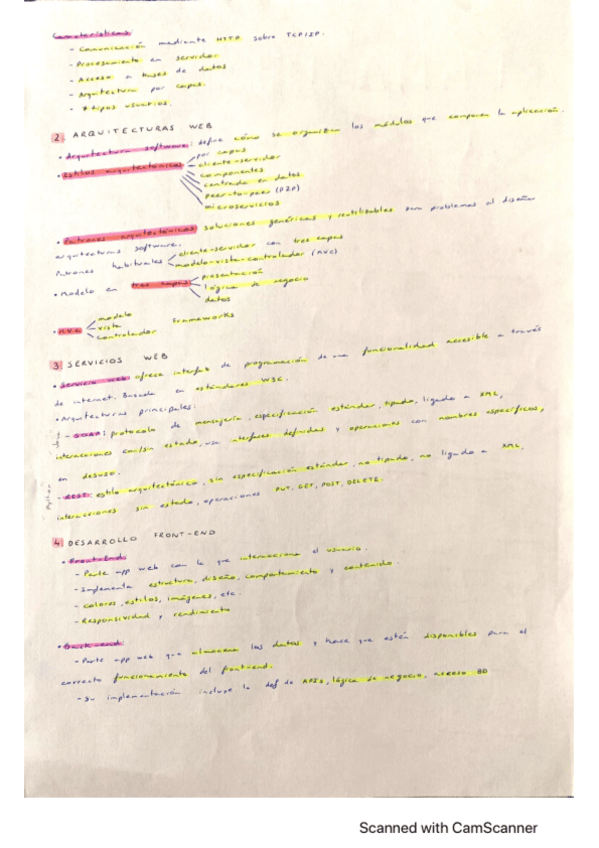 Características:
- Comunicación mediante HTTP sobre TCP/IP.
- Procesamiento en servidor
- Acceso a bases de datos
- Arquitectura por capas.
- 7 tipos usuarios.
2. ARQUITECTURAS WEB
• Arquitectura software: define cómo se organizan los módulos que componen la aplicación.
• Estilos arquitectónicos
por capas
cliente-servidor
componentes
centrada en datos
peer-to-peer (P2P)
microservicios
• Patrones arquitectónicos soluciones genéricas y reutilizables para problemas al diseñar
arquitecturas software.
Patrones habituales
cliente-servidor con tres capas
modelo-vista-controlador (MVC)
• Modelo en tres capas
presentación
lógica de negocio
datos
• MVC
modelo
vista
controlador
Frameworks
3 SERVICIOS WEB
• Servicio web: ofrece interfab de programación de una funcionalidad accesible a través
de internet. Basada en estándares W3C.
• Arquitecturas principales:
- SOAP: protocolo de mensajería, especificación estándar, tipado, ligado a XML,
interacciones con/sin estado, usa interfaces definidas y operaciones con nombres específicos,
en desuso.
- REST: estilo arquitectónico, sin especificación estándar, no tipado, no ligado a XML,
interacciones sin estado, operaciones PUT, GET, POST, DELETE.
Python
4 DESARROLLO FRONT-END
• Front-End:
- Parte app web con la que interacciona el usuario.
- Implementa estructura, diseño, comportamiento y contenido.
- colores, estilos, imágenes, etc.
- Responsividad y rendimiento
• Back-end:
- Parte app web que almacena los datos y hace que estén disponibles para el
correcto funcionamiento del front-end.
- Su implementación incluye la def de APIs, lógica de negocio, acceso BD
Scanned with CamScanner